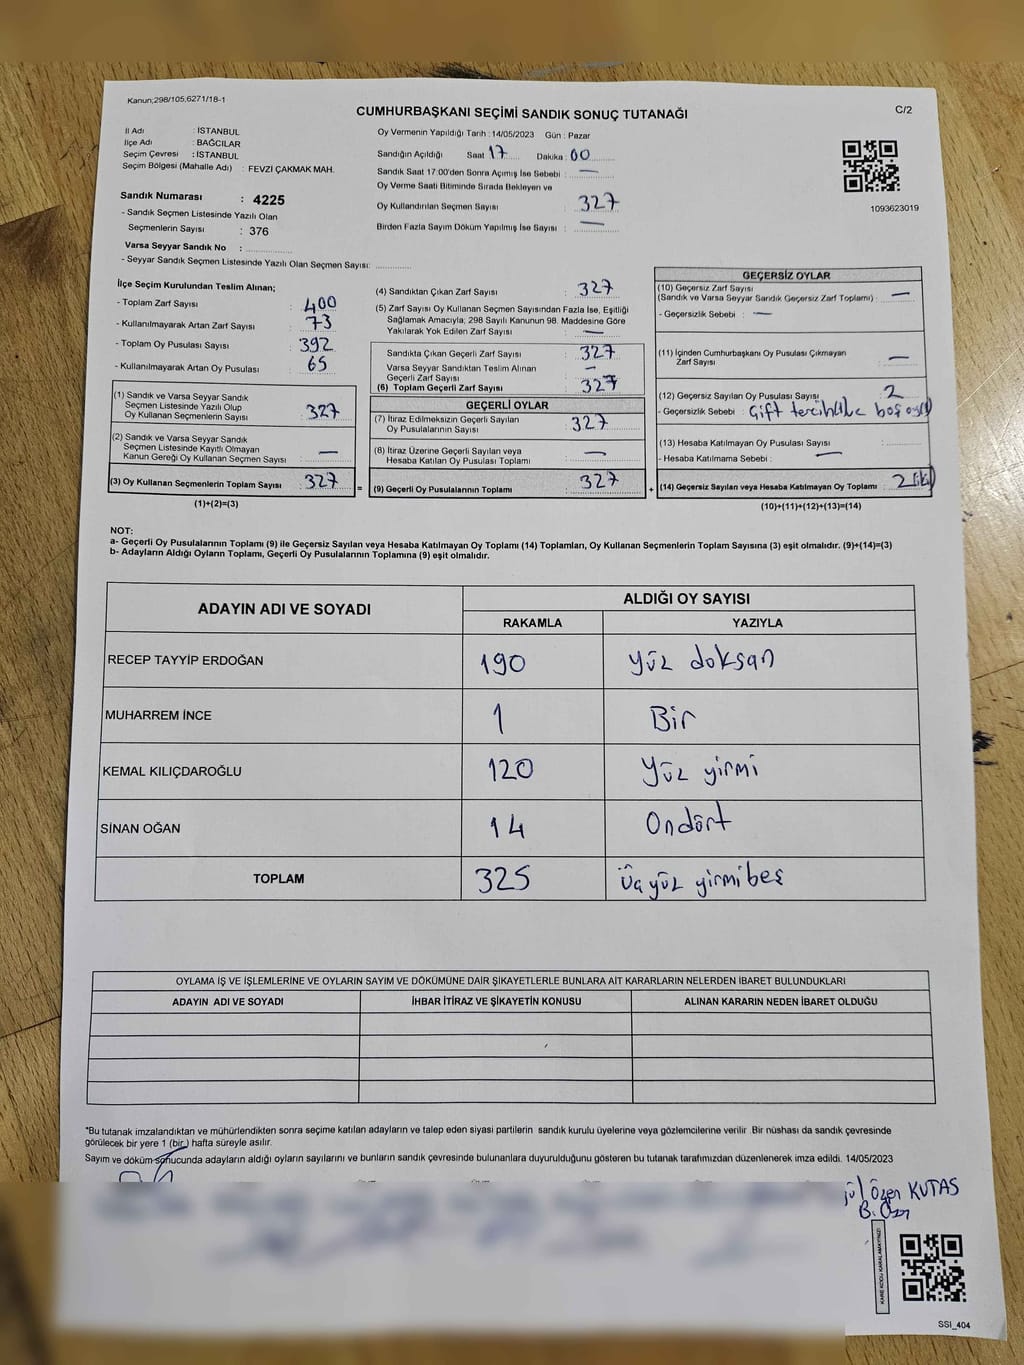 Kanun;298/105,6271/18-1
CUMHURBAŞKANI SEÇİMİ SANDIK SONUÇ TUTANAĞI
C/2
İl Adı : İSTANBUL
İlçe Adı : BAĞCILAR
Seçim Çevresi : İSTANBUL
Seçim Bölgesi (Mahalle Adı) : FEVZİ ÇAKMAK MAH.
Sandık Numarası : 4225
- Sandık Seçmen Listesinde Yazılı Olan
Seçmenlerin Sayısı : 376
Varsa Seyyar Sandık No :
- Seyyar Sandık Seçmen Listesinde Yazılı Olan Seçmen Sayısı:
Oy Vermenin Yapıldığı Tarih : 14/05/2023 Gün : Pazar
Sandığın Açıldığı Saat 17 Dakika : 00
Sandık Saat 17:00'den Sonra Açımış İse Sebebi : —
Oy Verme Saati Bitiminde Sırada Bekleyen ve
Oy Kullandırılan Seçmen Sayısı : 327
Birden Fazla Sayım Döküm Yapılmış İse Sayısı : —
1093623019
İlçe Seçim Kurulundan Teslim Alınan;
- Toplam Zarf Sayısı : 400
- Kullanılmayarak Artan Zarf Sayısı : 73
- Toplam Oy Pusulası Sayısı : 392
- Kullanılmayarak Artan Oy Pusulası : 65
(1) Sandık ve Varsa Seyyar Sandık
Seçmen Listesinde Yazılı Olup
Oy Kullanan Seçmenlerin Sayısı : 327
(2) Sandık ve Varsa Seyyar Sandık
Seçmen Listesinde Kayıtlı Olmayan
Kanun Gereği Oy Kullanan Seçmen Sayısı : —
(3) Oy Kullanan Seçmenlerin Toplam Sayısı : 327
(1)+(2)=(3)
=
(4) Sandıktan Çıkan Zarf Sayısı : 327
(5) Zarf Sayısı Oy Kullanan Seçmen Sayısından Fazla İse, Eşitliği
Sağlamak Amacıyla; 298 Sayılı Kanunun 98. Maddesine Göre
Yakılarak Yok Edilen Zarf Sayısı : —
Sandıkta Çıkan Geçerli Zarf Sayısı : 327
Varsa Seyyar Sandıktan Teslim Alınan
Geçerli Zarf Sayısı : —
(6) Toplam Geçerli Zarf Sayısı : 327
GEÇERLİ OYLAR
(7) İtiraz Edilmeksizin Geçerli Sayılan
Oy Pusulalarının Sayısı : 327
(8) İtiraz Üzerine Geçerli Sayılan veya
Hesaba Katılan Oy Pusulası Toplamı : —
(9) Geçerli Oy Pusulalarının Toplamı : 327
+
GEÇERSİZ OYLAR
(10) Geçersiz Zarf Sayısı
(Sandık ve Varsa Seyyar Sandık Geçersiz Zarf Toplamı) : —
- Geçersizlik Sebebi : —
(11) İçinden Cumhurbaşkanı Oy Pusulası Çıkmayan
Zarf Sayısı : —
(12) Geçersiz Sayılan Oy Pusulası Sayısı : 2
- Geçersizlik Sebebi : Çift tercihle boş oy
(13) Hesaba Katılmayan Oy Pusulası Sayısı :
- Hesaba Katılmama Sebebi : —
(14) Geçersiz Sayılan veya Hesaba Katılmayan Oy Toplamı : 2 (iki)
(10)+(11)+(12)+(13)=(14)
NOT:
a- Geçerli Oy Pusulasının Toplamı (9) ile Geçersiz Sayılan veya Hesaba Katılmayan Oy Toplamı (14) Toplamları, Oy Kullanan Seçmenlerin Toplam Sayısına (3) eşit olmalıdır. (9)+(14)=(3)
b- Adayların Aldığı Oyların Toplamı, Geçerli Oy Pusulalarının Toplamına (9) eşit olmalıdır.
ADAYIN ADI VE SOYADI ALDIĞI OY SAYISI
RAKAMLA YAZIYLA
RECEP TAYYİP ERDOĞAN 190 Yüz doksan
MUHARREM İNCE 1 Bir
KEMAL KILIÇDAROĞLU 120 Yüz yirmi
SİNAN OĞAN 14 Ondört
TOPLAM 325 Üçyüz yirmibeş
OYLAMA İŞ VE İŞLEMLERİNE VE OYLARIN SAYIM VE DÖKÜMÜNE DAİR ŞİKAYETLERLE BUNLARA AİT KARARLARIN NELERDEN İBARET BULUNDUKLARI
ADAYIN ADI VE SOYADI İHBAR İTİRAZ VE ŞİKAYETİN KONUSU ALINAN KARARIN NEDEN İBARET OLDUĞU
*Bu tutanak imzalandıktan ve mühürlendikten sonra seçime katılan adayların ve talep eden siyasi partilerin sandık kurulu üyelerine veya gözlemcilerine verilir .Bir nüshası da sandık çevresinde
görülecek bir yere 1 (bir) hafta süreyle asılır.
Sayım ve döküm sonucunda adayların aldığı oyların sayılarını ve bunların sandık çevresinde bulunanlara duyurulduğunu gösteren bu tutanak tarafımızdan düzenlenerek imza edildi. 14/05/2023
Özen KUTAS
SSI_404